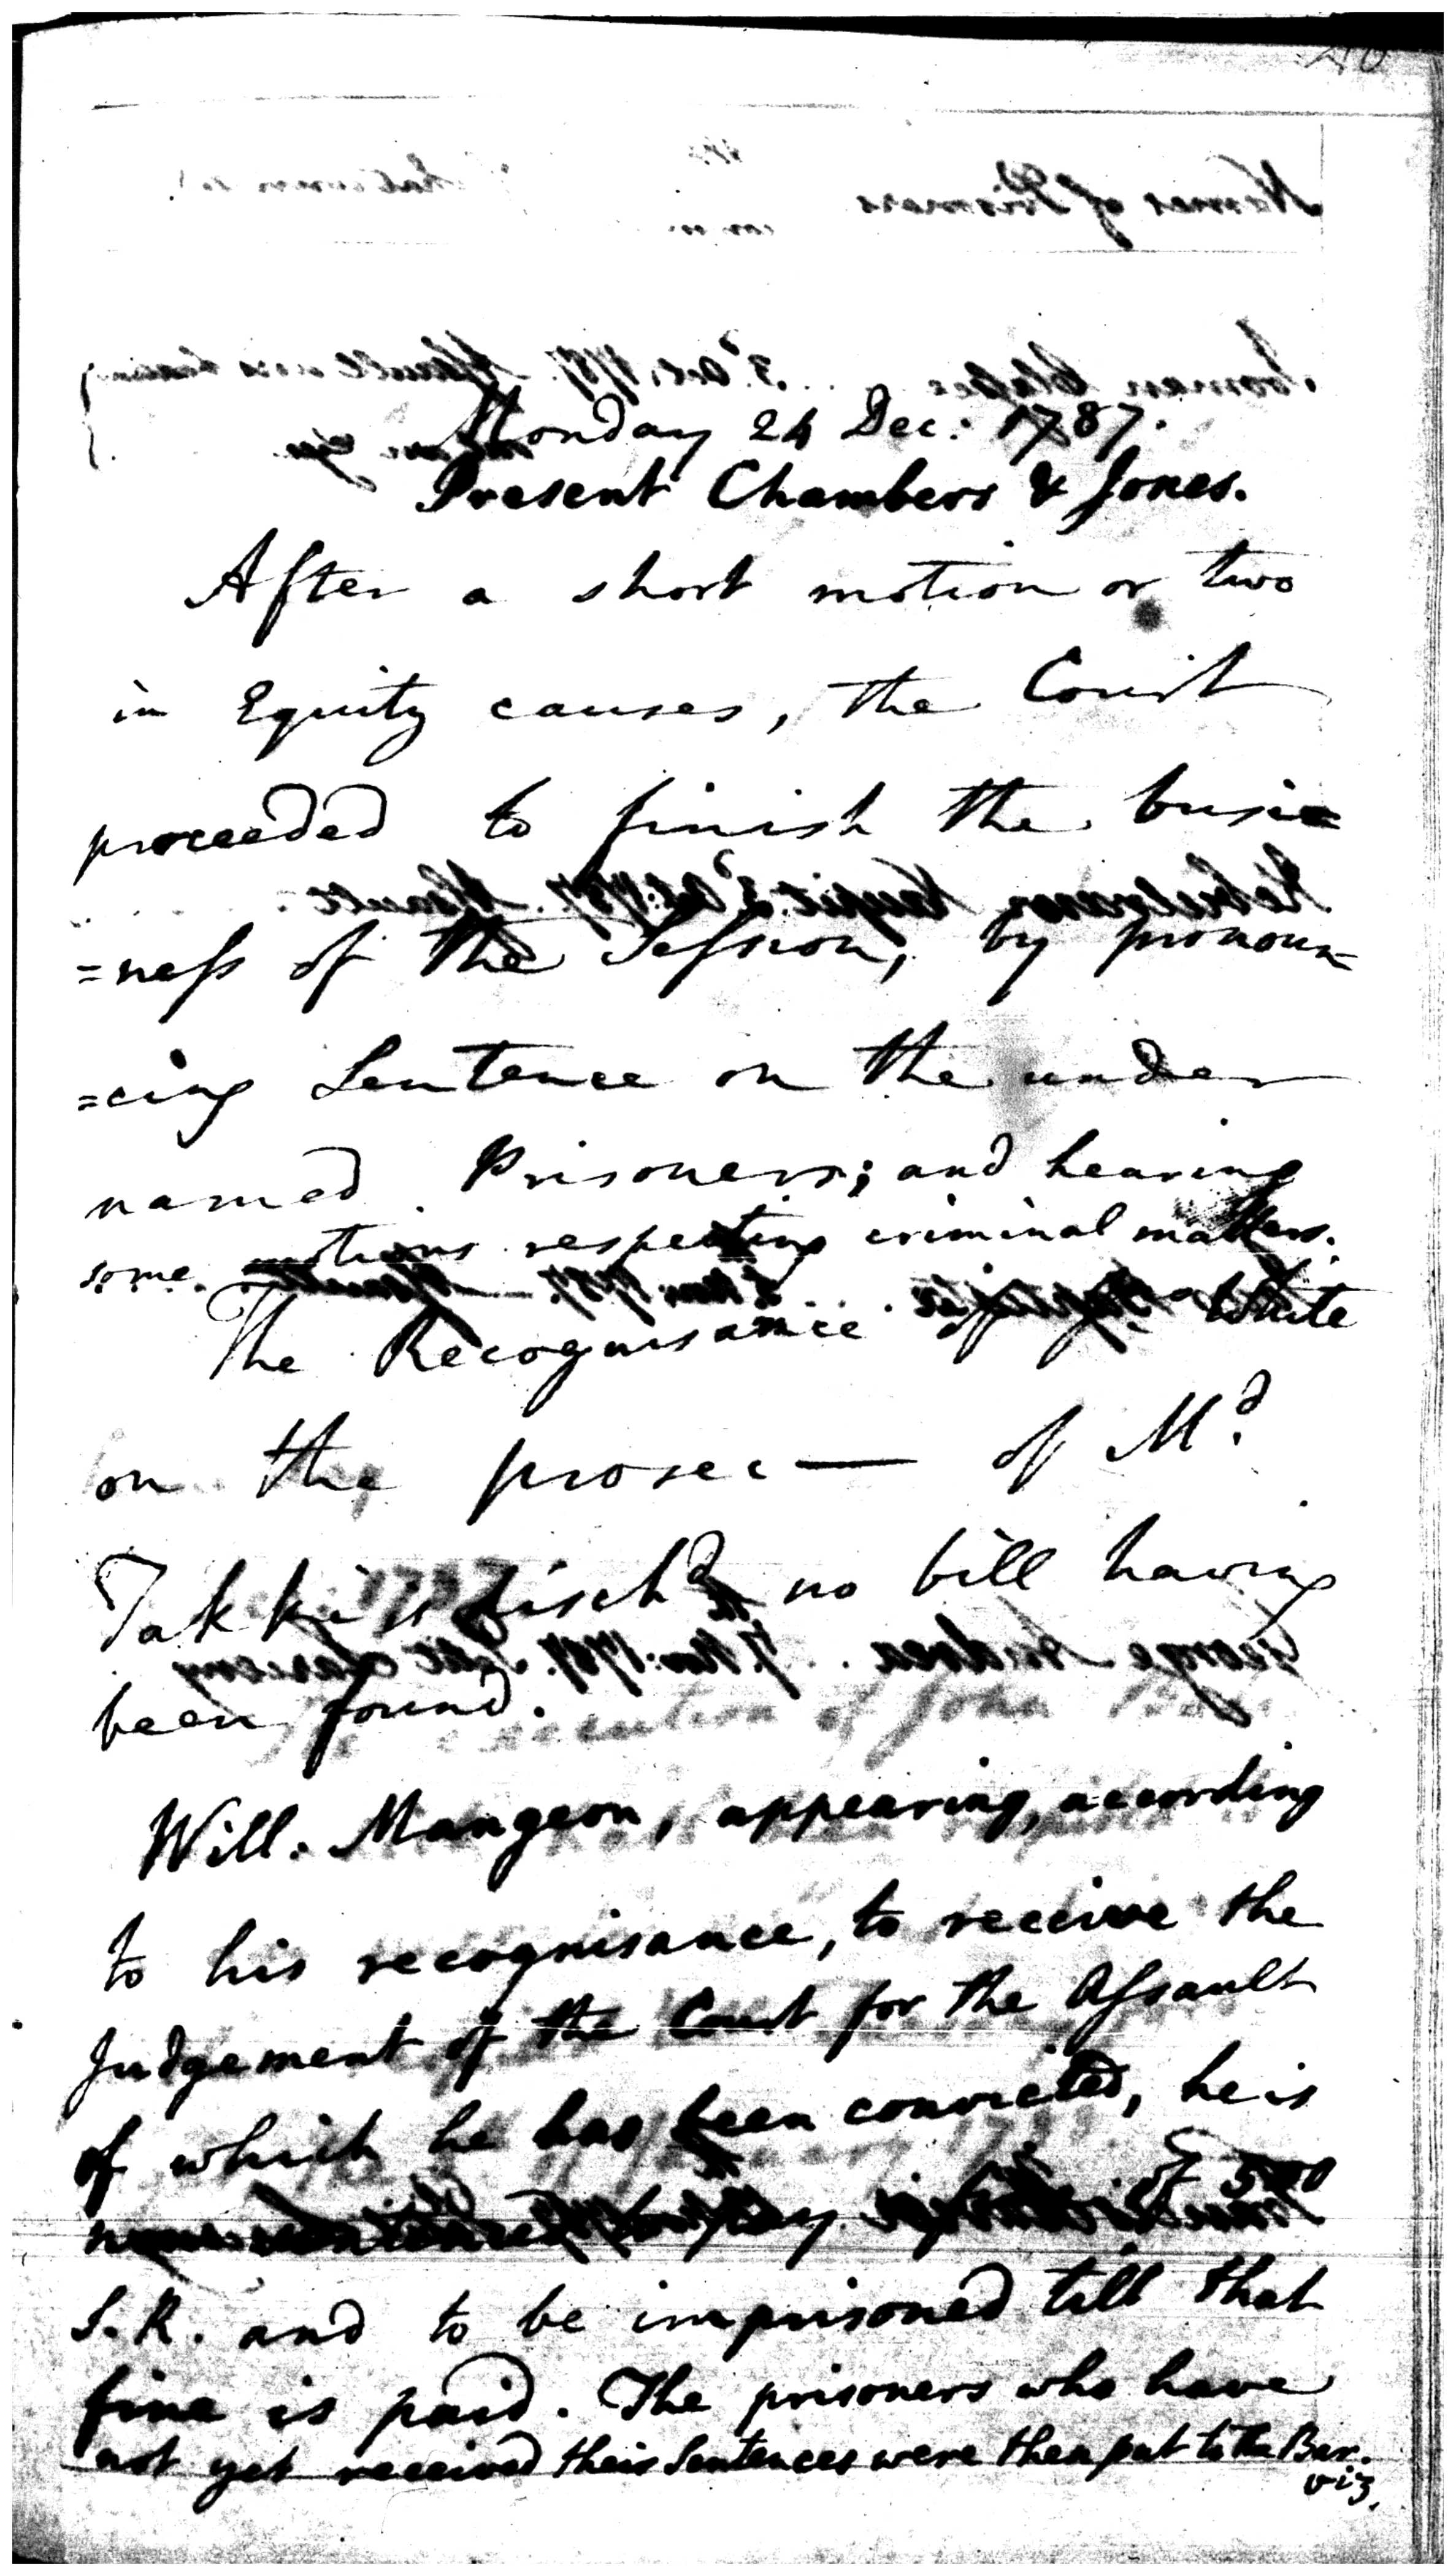 Monday 24 Dec: 1787.
Present Chambers & Jones.
After a short motion or two
in Equity causes, the Court
proceeded to finish the busi=
=ness of the Session, by pronoun=
=cing Sentence on the under
named Prisoners; and hearing
some motions respecting criminal matters.
The Recognisance of White
on the prosec— of Md.
Takki is disch.d no bill having
been found.
Will. Mangeon, appearing, according
to his recognisance, to receive the
Judgement of the Court for the Assault
of which he has been convicted, he is
now sentenced to pay of 500
S.R. and to be imprisoned till that
fine is paid. The prisoners who have
not yet received their Sentences were then put to the Bar.
viz.